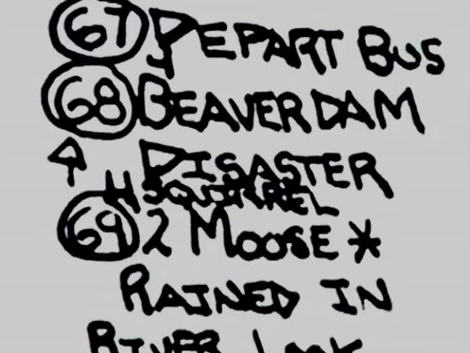 67 DEPART BUS
68 BEAVER DAM
DISASTER
4 SQUIRREL
69 2 MOOSE *
RAINED IN
RIVER LOOK